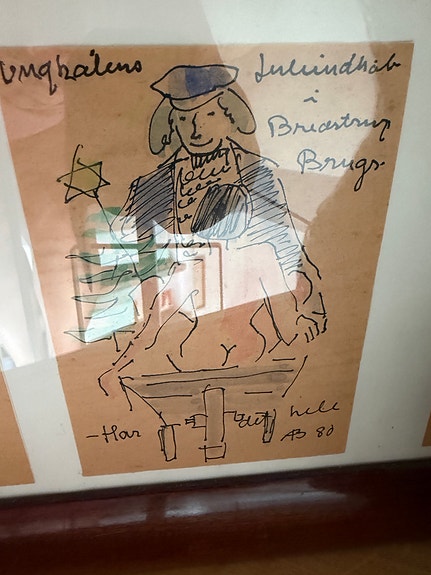 Ungkalens
Juleindkøb
i
Bredstrup
Brugs.
-Har det hele
AB 80